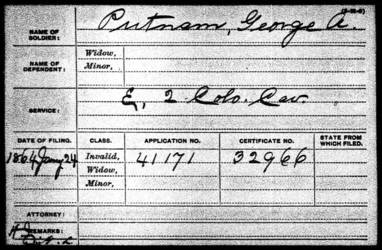 (3-25-0)
NAME OF SOLDIER: Putnam, George A.
NAME OF DEPENDENT: Widow,
Minor,
SERVICE: E, 2 Colo. Cav.
DATE OF FILING. CLASS. APPLICATION NO. CERTIFICATE NO. STATE FROM WHICH FILED.
1864 Jany 24 Invalid, 41171 32966
Widow,
Minor,
ATTORNEY:
REMARKS: